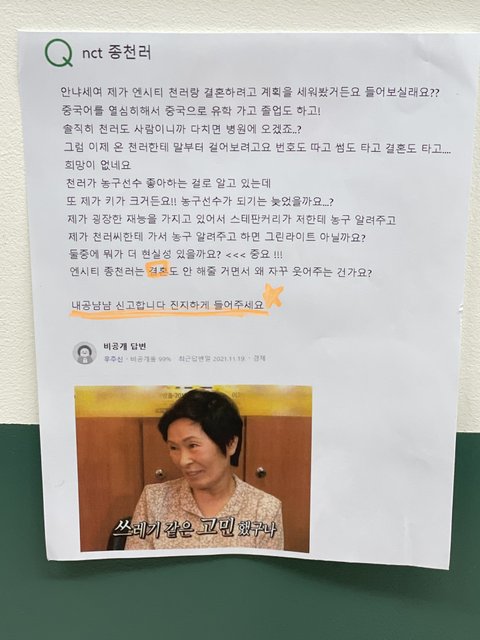 Q nct 종천러
안냐세여 제가 엔시티 천러랑 결혼하려고 계획을 세워봤거든요 들어보실래요??
중국어를 열심히해서 중국으로 유학 가고 졸업도 하고!
솔직히 천러도 사람이니까 다치면 병원에 오겠죠..?
그럼 이제 온 천러한테 말부터 걸어보려고요 번호도 따고 썸도 타고 결혼도 타고....
희망이 없네요
천러가 농구선수 좋아하는 걸로 알고 있는데
또 제가 키가 크거든요!! 농구선수가 되기는 늦었을까요...?
제가 굉장한 재능을 가지고 있어서 스테판커리가 저한테 농구 알려주고
제가 천러씨한테 가서 농구 알려주고 하면 그린라이트 아닐까요?
둘중에 뭐가 더 현실성 있을까요? <<< 중요 !!!
엔시티 종천러는 결혼도 안 해줄 거면서 왜 자꾸 웃어주는 건가요?
내공냠냠 신고합니다 진지하게 들어주세요
비공개 답변
우주신 · 비공개율 99% 최근답변일 2021.11.19. · 경제
쓰레기 같은 고민 했구나